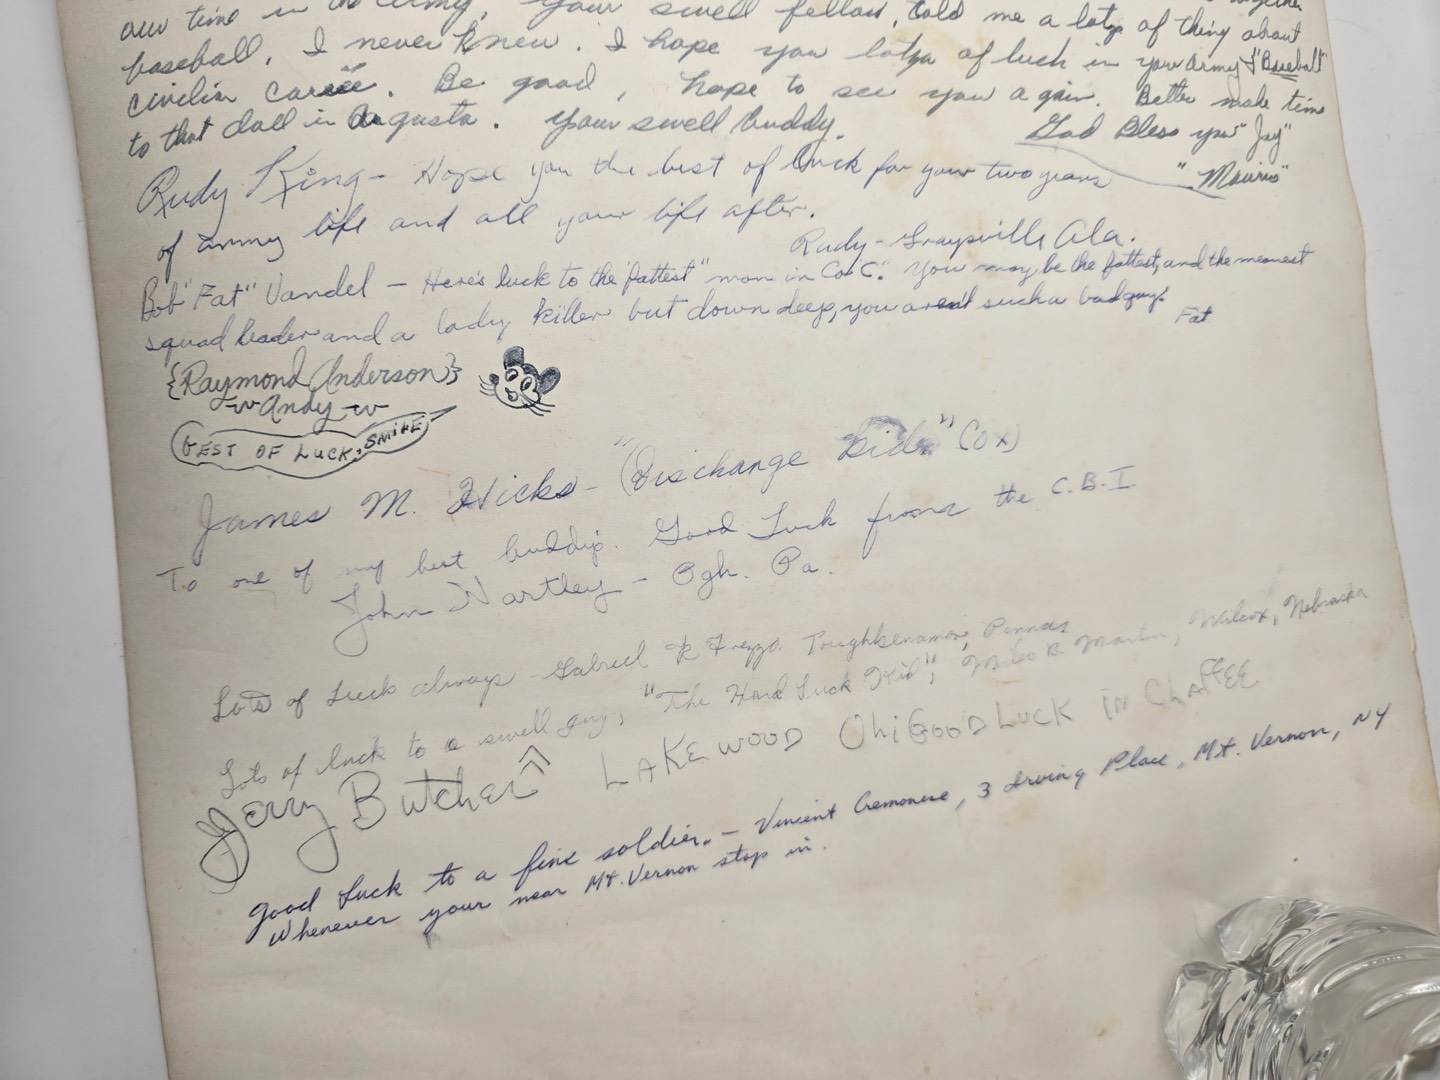 our time in the Army. Your swell fellow, told me a lots of thing about
baseball, I never knew. I hope you lotza of luck in your Army & "Baseball"
civilin career. Be good, hope to see you again. Better make time
to that doll in Augusta. Your swell buddy.
God Bless you "Jay"
"Mauris"
Rudy King - Hope you the best of luck for your two years
of army life and all your life after.
Rudy - Graysville Ala.
Bob "Fat" Vandel - Here's luck to the "fattest" man in Co "C". You may be the fattest, and the meanest
squad leader and a lady killer but down deep, you aren't such a bad guy.
Fat
{Raymond Anderson}
Andy
BEST OF LUCK, SMILE
James M. Hicks - "(Discharge Kid" (Ox)
To one of my best buddys. Good Luck from the C.B.I.
John Hartley - Pgh. Pa.
Lots of Luck always - Gabriel R Frezzo.
Lots of luck to a swell guy, "The Hard Luck Kid", Miles B. Martin, Wilcox, Nebraska
Jerry Butcher LAKEWOOD OhiGOOD LUCK IN CHAFFEE
Good Luck to a fine soldier. - Vincent Cremonese, 3 Irving Place, Mt. Vernon, NY
Whenever your near Mt. Vernon stop in.